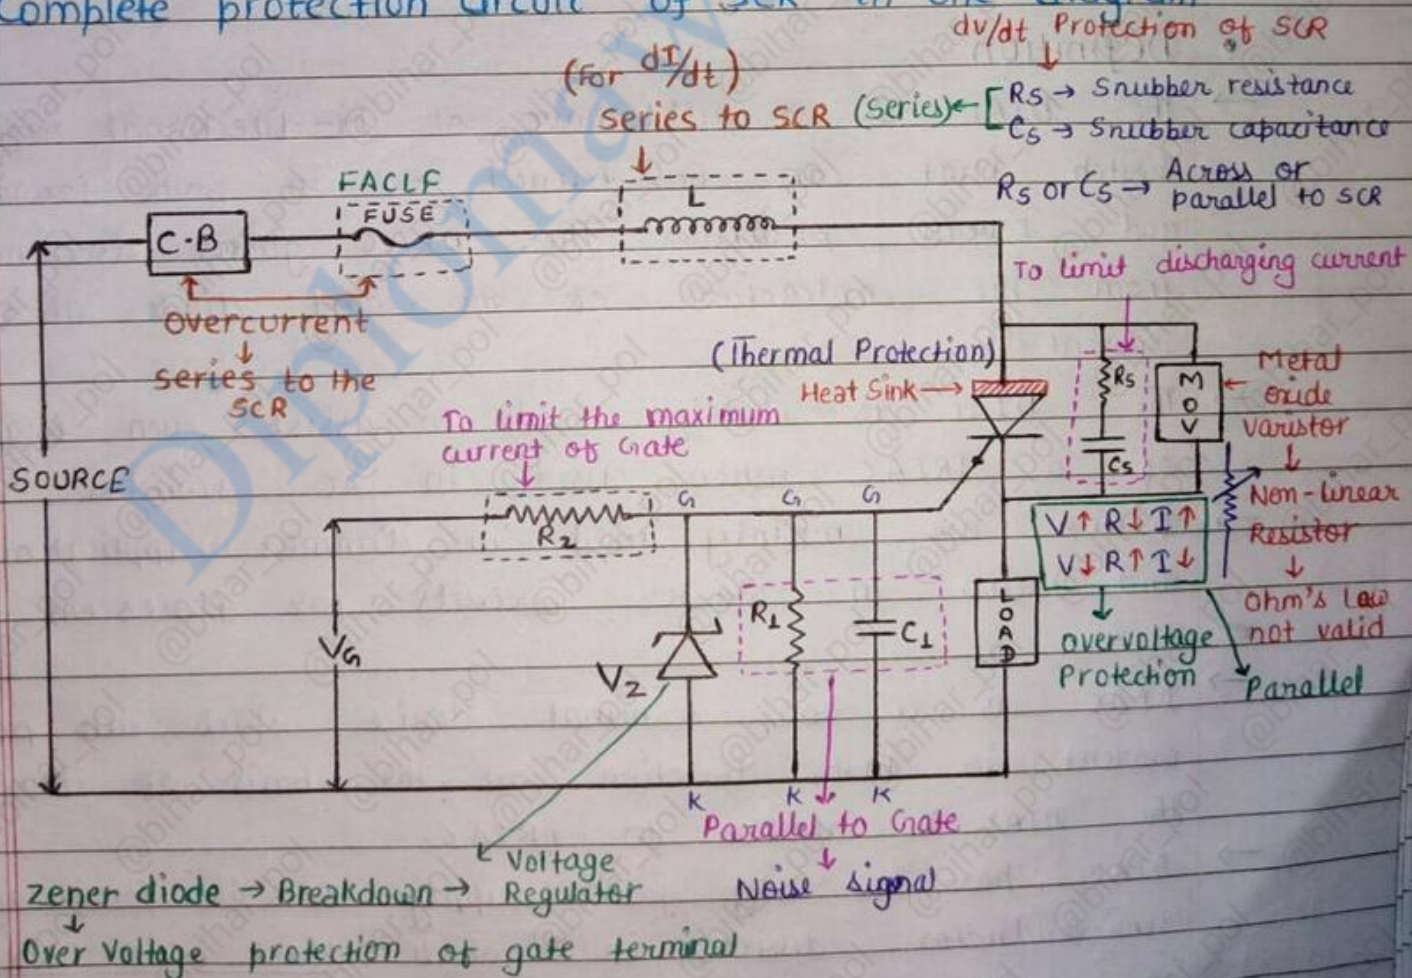 Complete protection circuit of SCR in one diagram
dv/dt Protection of SCR
(For dI/dt)
series to SCR (Series)
Rs → Snubber resistance
Cs → Snubber capacitance
Rs or Cs → Across or
parallel to SCR
FACLF
FUSE
L
C-B
To limit discharging current
overcurrent
series to the
SCR
(Thermal Protection)
Heat Sink →
Rs
Cs
MOV
Metal
oxide
varistor
Non-linear
Resistor
Ohm's Law
not valid
To limit the maximum
current of Gate
SOURCE
R2
G G G
V↑ R↓ I↑
V↓ R↑ I↓
LOAD
overvoltage
Protection
Parallel
VG
VZ
R1
C1
K K K
Parallel to Gate
Noise signal
zener diode → Breakdown → Voltage
Regulator
Over Voltage protection of gate terminal
Diploma
@bihar_pol